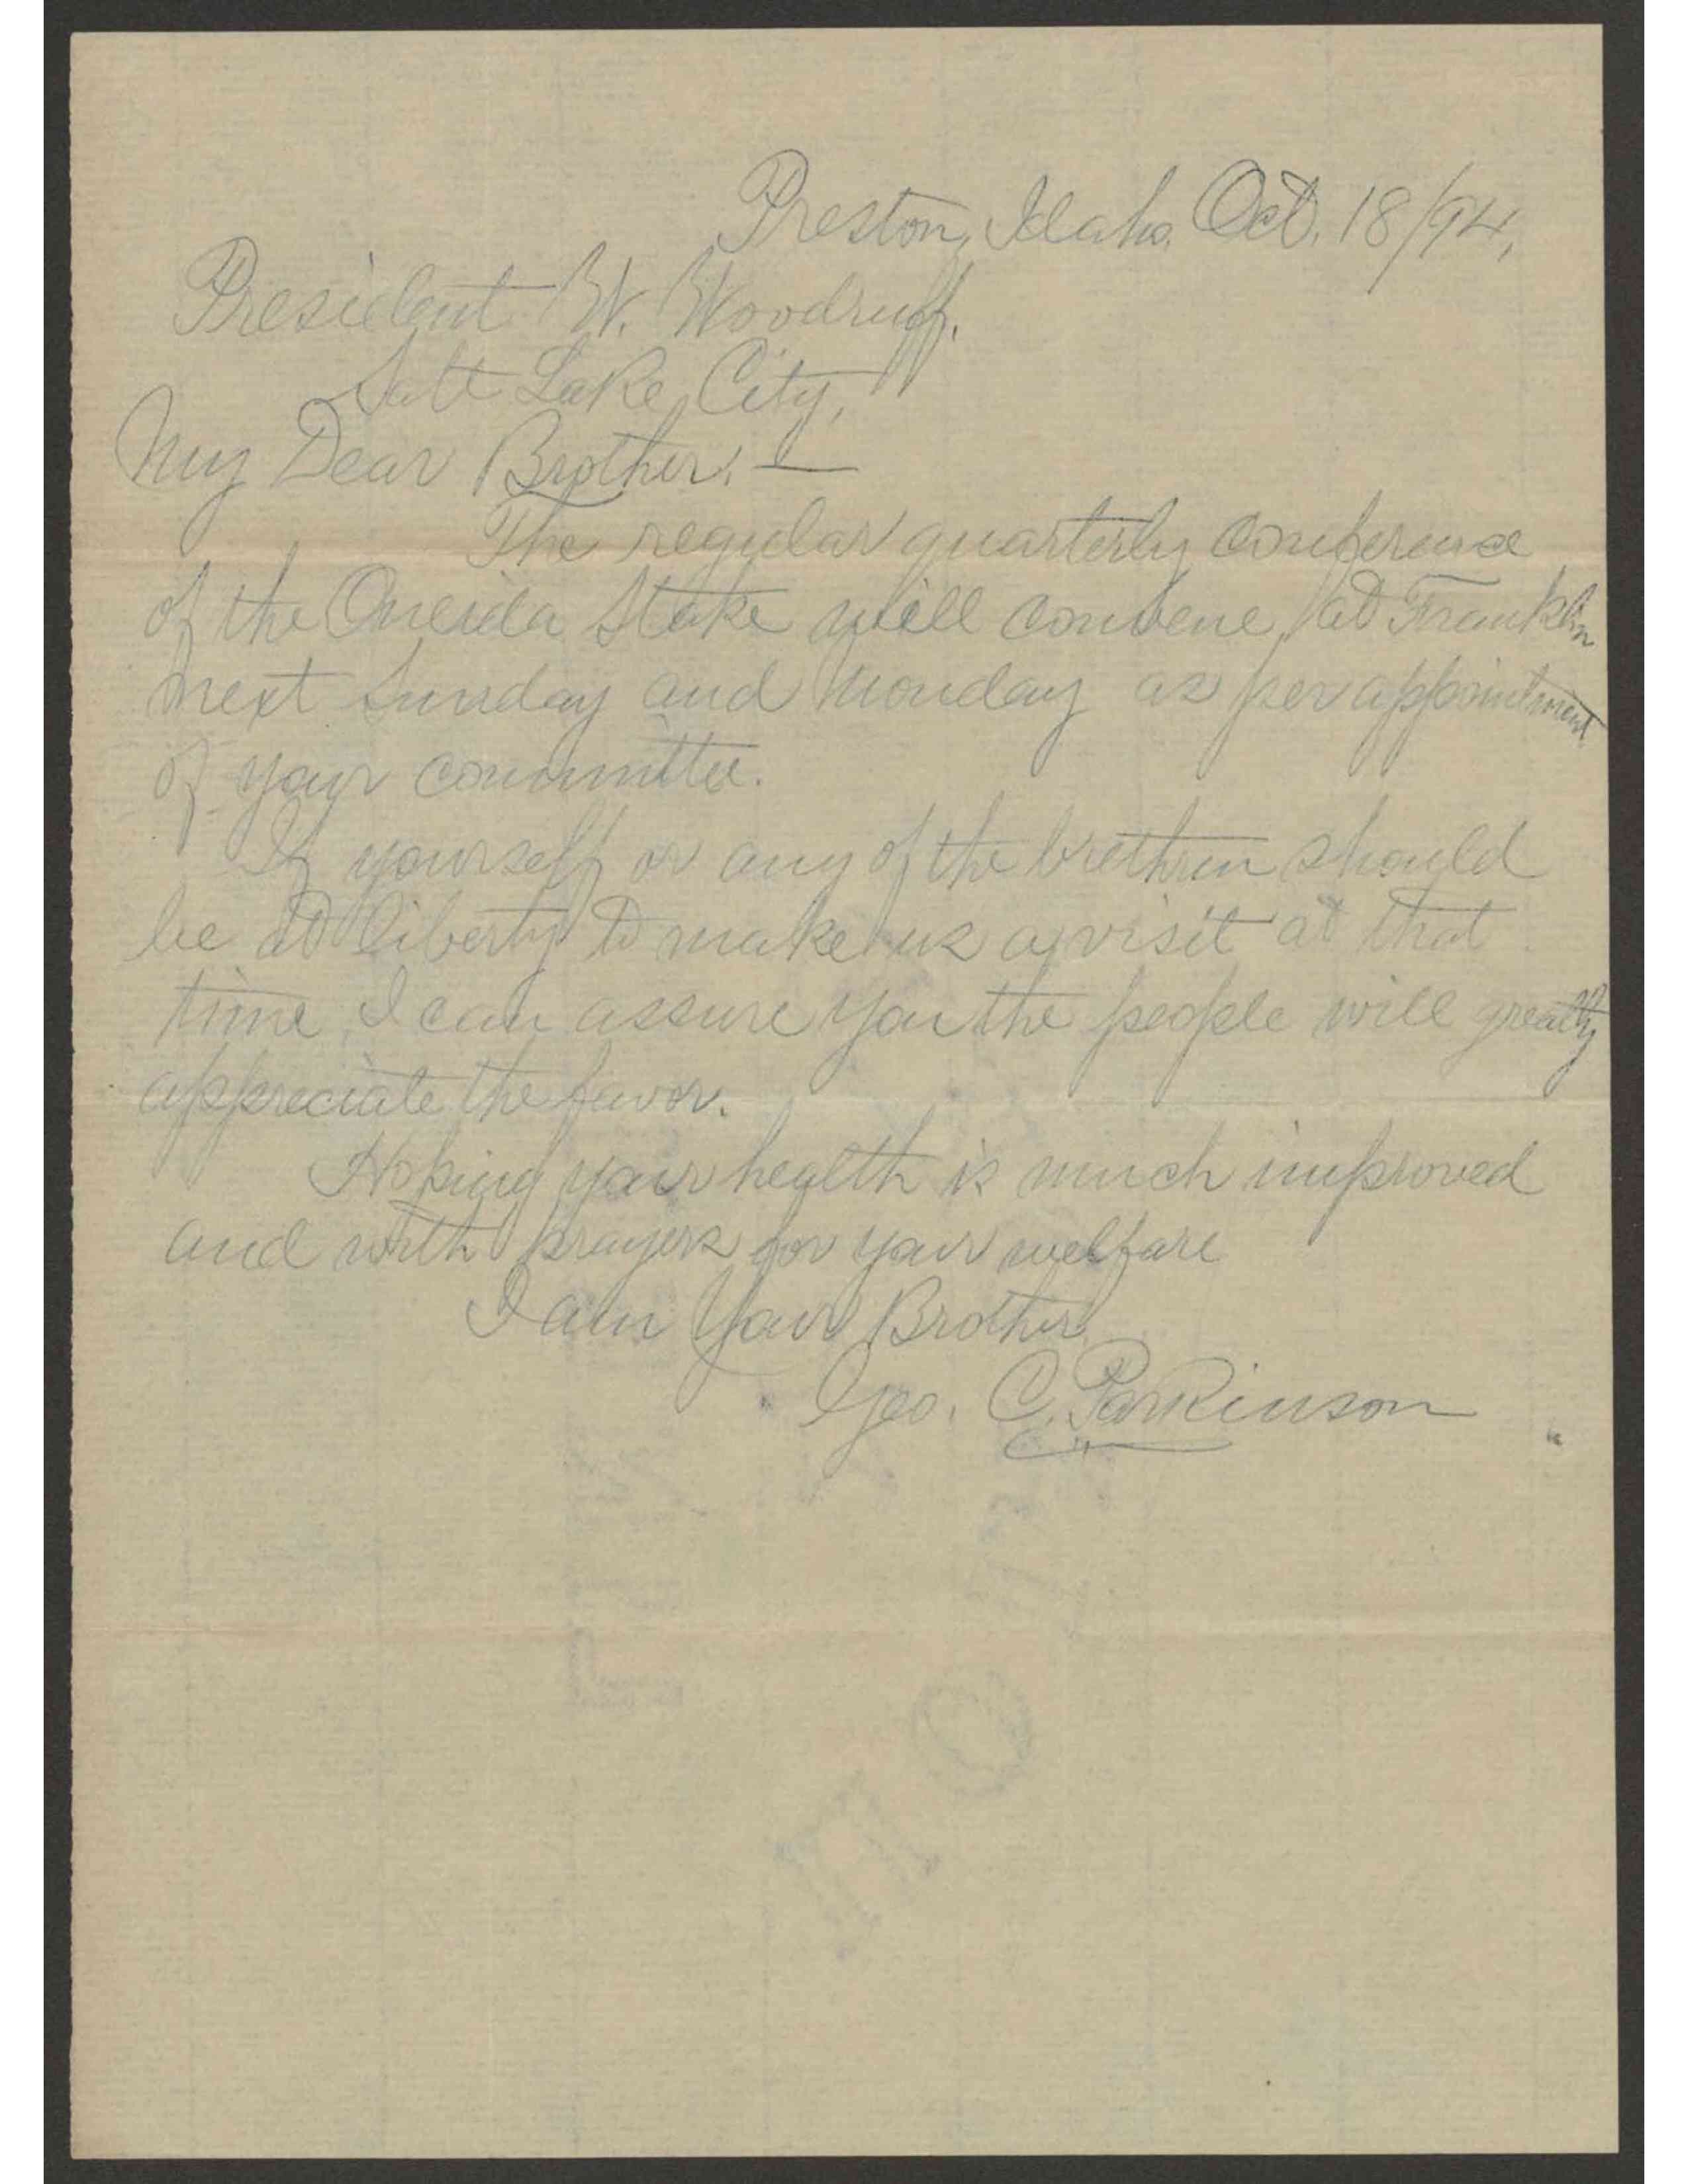 Preston, Idaho. Oct. 18/94,
President W. Woodruff.
Salt Lake City,
My Dear Brother:—
The regular quarterly conference
of the Oneida Stake will convene at Franklin
next Sunday and Monday as per appointment
of your committee.
If yourself or any of the brethren should
be at liberty to make us a visit at that
time, I can assure you the people will greatly
appreciate the favor.
Hoping your health is much improved
and with prayers for your welfare
I am Your Brother
Geo. C. Parkinson